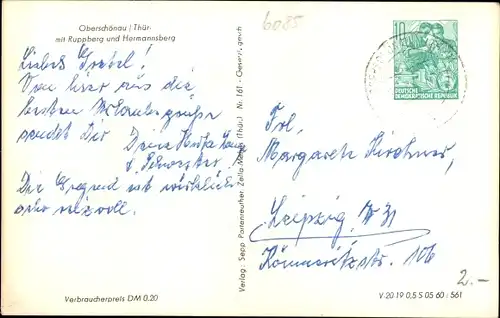 Oberschönau / Thür.
mit Ruppberg und Hermannsberg
Liebes Gretel!
Von hier aus die
besten Urlaubsgrüße
sendet Dir Deine
u. Schwester.
Die Gegend ist wirklich
sehr reizvoll.
Verbraucherpreis DM 0.20
Verlag: Sepp Partenreuther, Zella-Mehlis (Thür.) Nr. 161 - Gesetzl. gesch.
6085
10
DEUTSCHE
DEMOKRATISCHE REPUBLIK
Frl.
Margarete Kirchner,
Leipzig,
Könneritzstr. 106
2.-
V 20 19 0,5 S 05 60 : 561